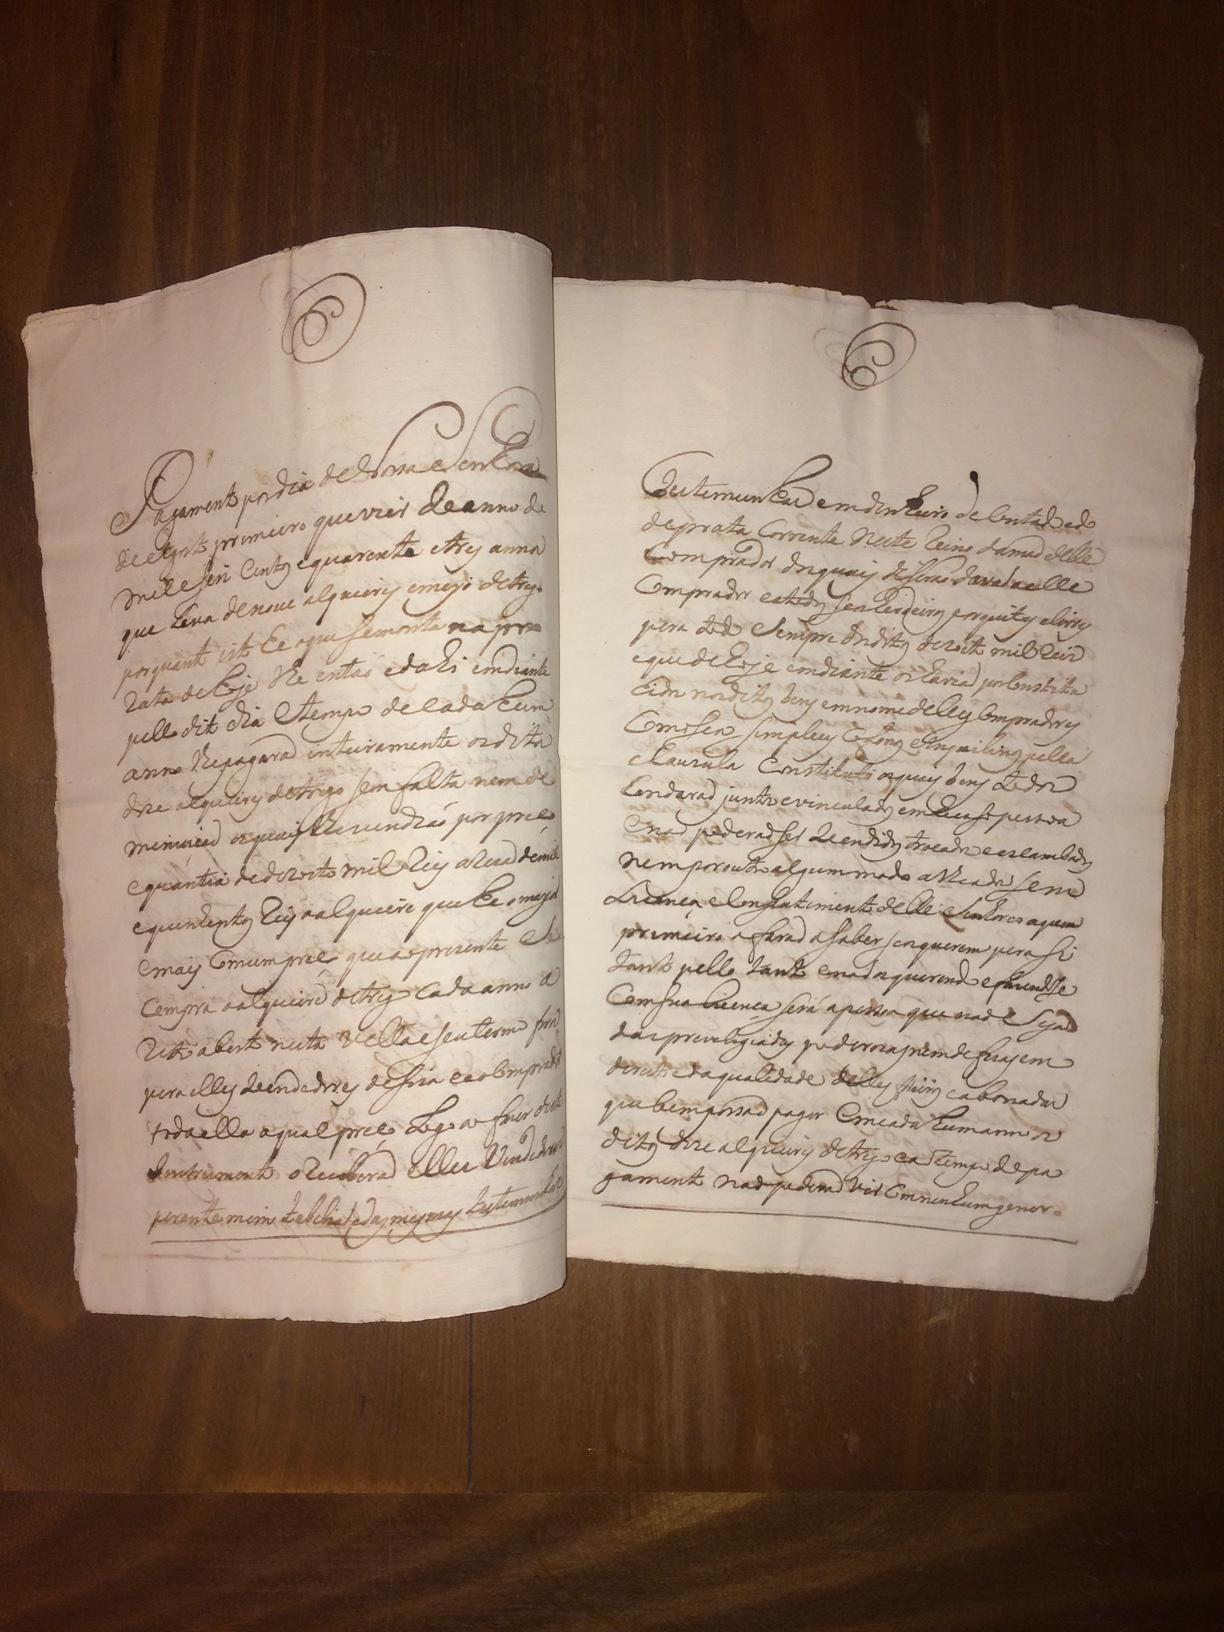 Pagamento por dia de Nossa Senhora
de Agosto primeiro que vier de anno de
mil e seis centos e quarenta e tres annos
que sera de noue alqueires e meyo de trigo
porquanto isto he o que se monta na pro
rata de hoje the entaõ e dahi em diante
pello dito dia e tempo de cada hum
anno lhe pagaraõ inteiramente os ditos
doze alqueires de trigo sem falta nem de
minuicaõ os quais lhe uendiaõ por preco
e quantia de dezoito mil Reis a Rezaõ de mil
e quinhentos Reis o alqueire que he o major
e mais comum preco que ao presente se
compra o alqueire de trigo cada anno a
Reto aberto nesta Villa e seu termo forro
pera elles Uendedores de siza e ao comprador
toda ella o qual preco logo ao fazer deste
Instrumento o Receberaõ elles Vendedores
perante mim tabeliaõ e das mesmas testemunhas
testemunhas em dinheiro de contado e do
de prata corrente neste Reino da maõ delle
comprador dos quais disseraõ davaõ a elle
comprador e a todos seus erdeiros por quites e livres
pera todo sempre dos ditos dezoito mil Reis
e que de hoje em diante os haviaõ por constitu
idos nos ditos bens em nome delles compradores
como seus simplices colonos e inquilinos pella
clausula constituti os quais bens todos
handaraõ juntos e vinculados em huã so pessoa
e naõ poderaõ ser Uendidos trocados e escambados
nem por outro algum modo alheados sem
Licença e consentimento delle senhorio a quem
primeiro o faraõ a saber se os querem pera si
tanto pello tanto e naõ os querendo e fazendosse
com sua licença será a pessoa que naõ seja
das previlegiadas poderozas nem defezas em
direito e da qualidade delles foreiros e abonados
que bem possaõ pagar em cada hum anno os
ditos doze alqueires de trigo e ao tempo do pa
gamento naõ poderaõ vir com nenhum genero